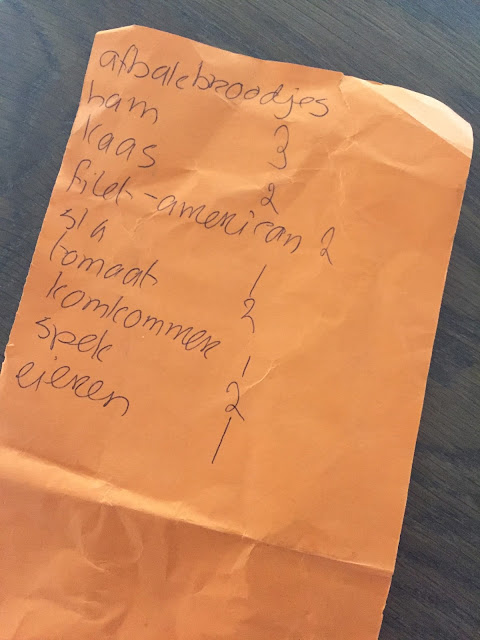 afbakbroodjes
ham 3
kaas 2
filet-american 2
sla 1
tomaat 2
komkommer 1
spek 2
eieren 1